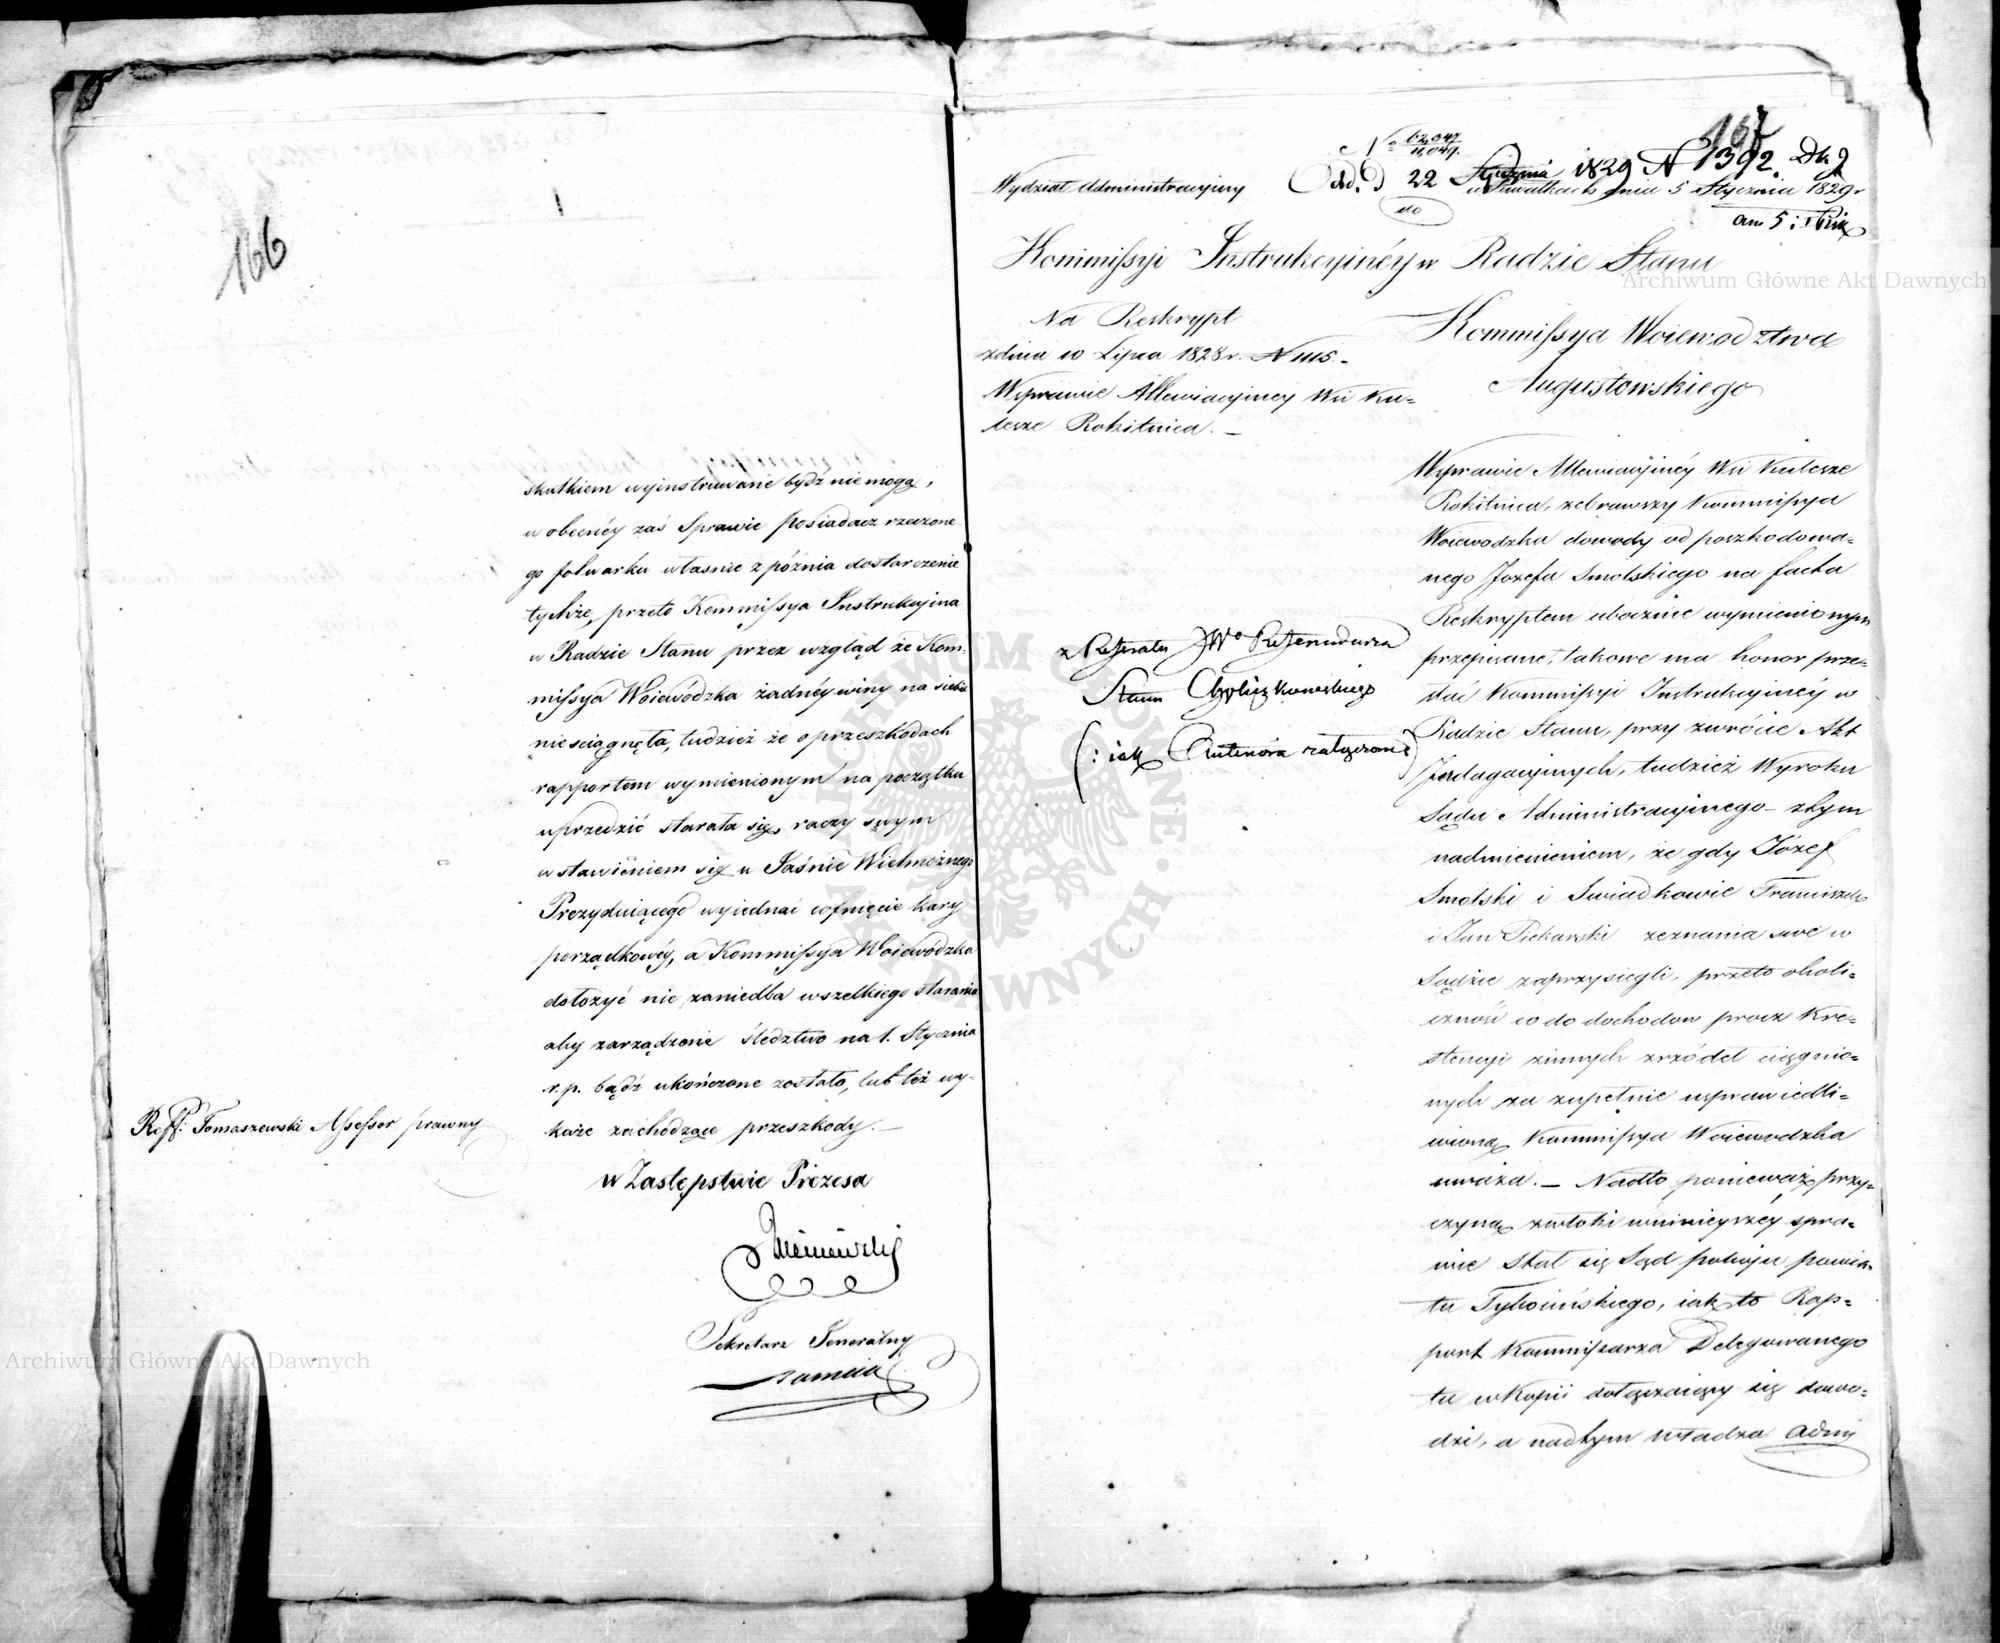 166
skutkiem wyinstruwane bydź nie mogą,
w obecnéy zaś Sprawie posiadacz rzeczone-
go folwarku własnie zpóźnia dostarczenie
tychże, przeto Kommissya Instrukcyina
w Radzie Stanu przez wzgląd że Kom-
missya Woiewódzka żadnéy winy na siebie
nie sciągnęła, tudzież że o przeszkodach
rapportem wymienionym na początku
uprzedzić starała się, raczy swym
wstawieniem się u Jaśnie Wielmożnego
Prezyduiącego wyiednać cofnięcie kary
porządkowéy, a Kommissya Woiewódzka
dołożyć nie zaniedba wszelkiego starania
aby zarządzone śledztwo na 1. Stycznia
r. p. bądź ukończone zostało, lub też wy-
każe zachodzące przeszkody. —
Reff: Tomaszewski Assessor prawny
w Zastępstwie Prezesa
Sekretarz Generalny
167
No 62,047
11,049.
Wydział Administracyiny
Odd. D 22 Stycznia 1829 N 1392. Dk 9
w Suwałkach dnia 5 Stycznia 1829 r
do
Kommissyi Instrukcyinéy w Radzie Stanu
Na Reskrypt
z dnia 10 Lipca 1828 r. N 1115. -
W sprawie Allewiacyiney Wsi Ku=
lesze Rokitnica. —
Kommissya Woiewodztwa
Augustowskiego
z Referatu JWo Referendarza
Stanu
(: iak Antenora załączone
W sprawie Allewiacyinéy Wsi Kulesze
Rokitnica, zebrawszy Kommissya
Woiewodzka dowody od poszkodowa=
nego Jozefa Smolskiego na facta
Reskryptem ubocznie wymienionym
przepisane, takowe ma honor prze=
słać Kommissyi Instrukcyinéy w
Radzie Stanu, przy zwrócie Akt
Indagacyinych, tudzież Wyroku
Sądu Administracyinego - z tym
nadmienieniem, że gdy Józef
Smolski i Swiadkowie Franciszek
i Jan Piekarski zeznania swe w
Sądzie zaprzysiegli, przeto okoli=
czność co do dochodow procz Kre=
stencyi z innych zrzódeł ciągnio=
nych za zupełnie usprawiedli=
wioną Kommissya Woiewodzka
uważa. — Nadto ponieważ przy=
czyną zwłoki w ninieyszéy spra=
wie stał się Sąd pokoju powia=
tu Tykocińskiego, iak to Rap=
port Kommissarza Delegowanego
tu w Kopii dołączaiący się dowo=
dzi, a nadtym władza Admi